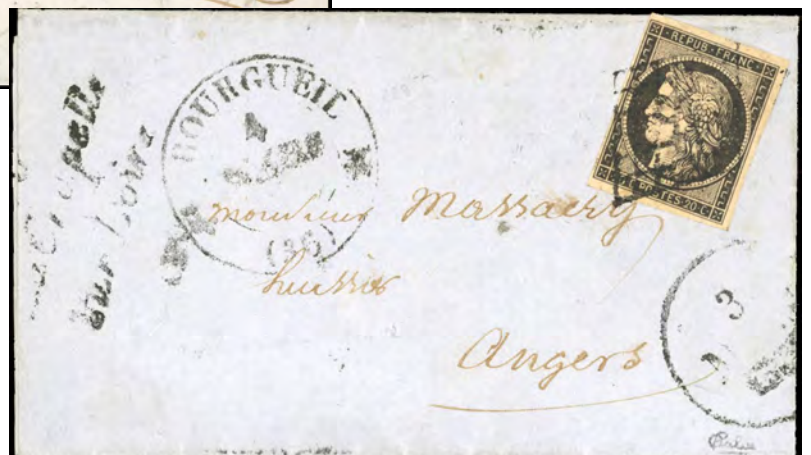 La Chapelle
sur Loire
BOURGUEIL
4
(36)
REPUB. FRANC.
POSTES. 20. C
monsieur
huissier
Angers
3